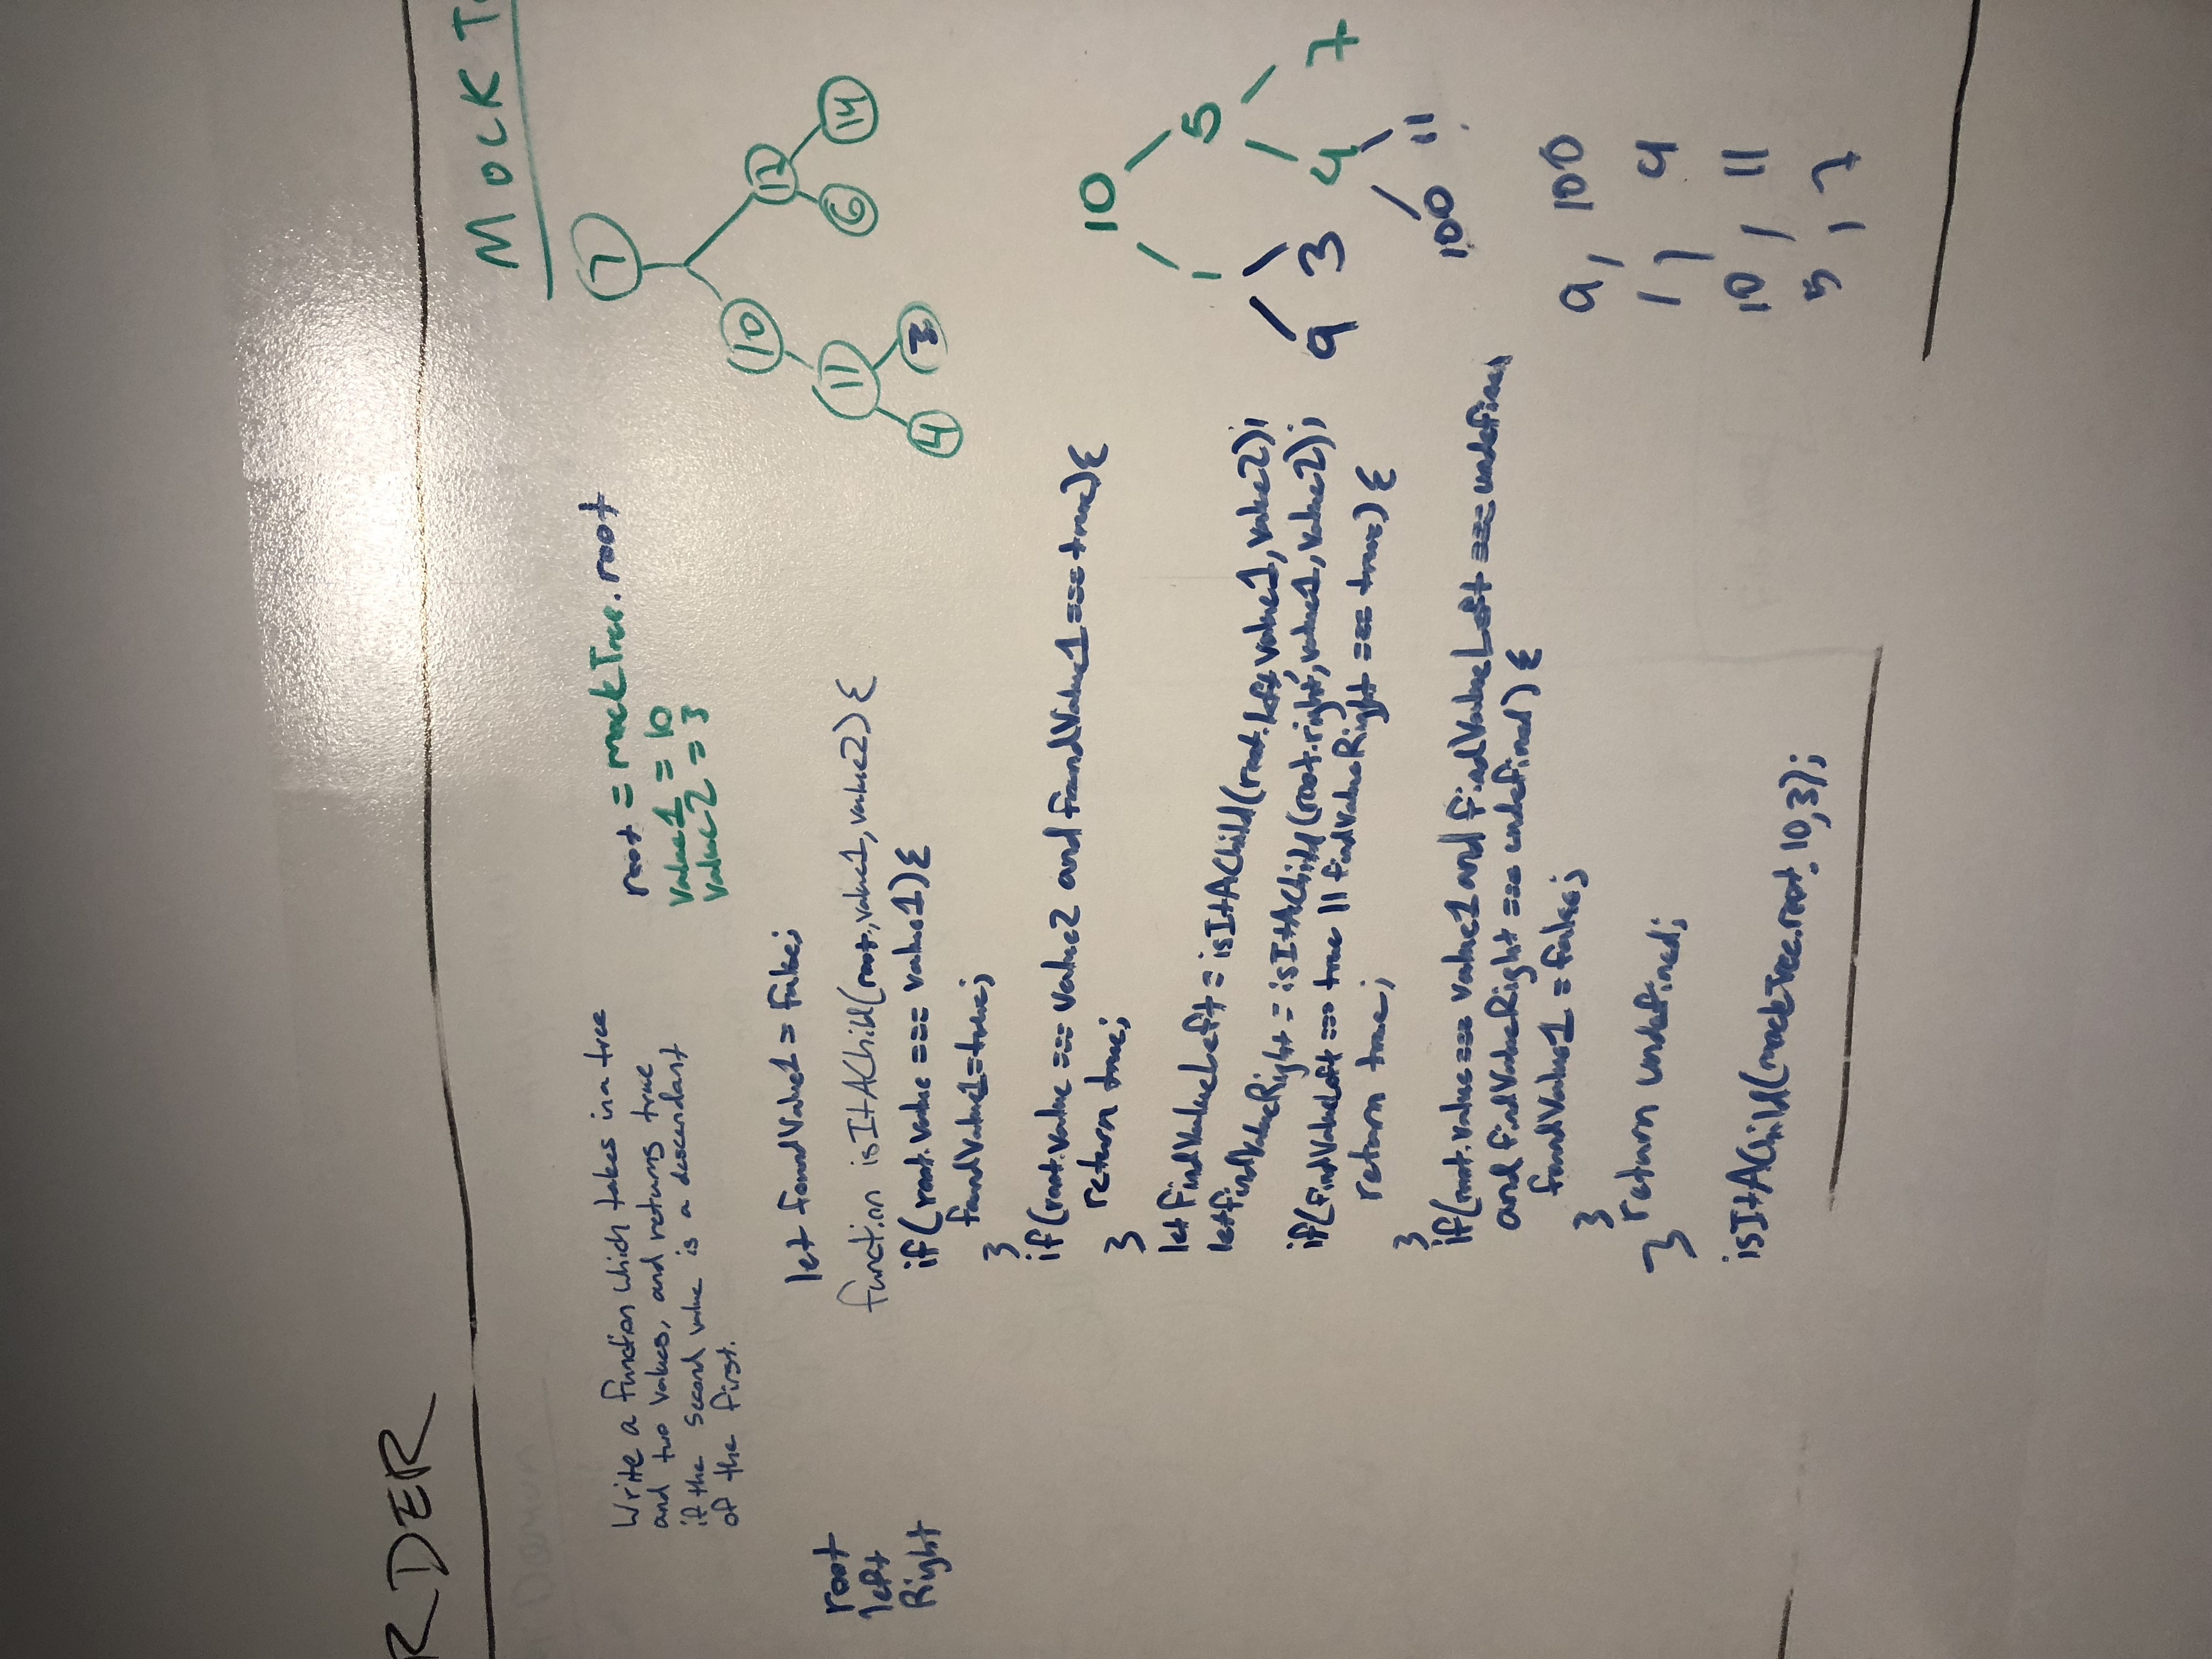 RDER
MOCK T
Write a function which takes in a tree
and two values, and returns true
if the second value is a descendant
of the first.
root = mockTree.root
value1 = 10
value2 = 3
root
left
Right
let foundValue1 = false;
function isItAChild(root, value1, value2) {
if(root.value === value1){
foundValue1 = true;
}
if(root.value === value2 and foundValue1 === true){
return true;
}
let findValueLeft = isItAChild(root.left, value1, value2);
let findValueRight = isItAChild(root.right, value1, value2);
if(findValueLeft === true || findValueRight === true) {
return true;
}
if(root.value === value1 and findValueLeft === undefined
and findValueRight === undefined) {
foundValue1 = false;
}
return undefined;
}
isItAChild(mockTree.root, 10, 3);
7
10 12
11 6 14
4 3
10
1 5
9 3 4 7
100 11
9, 100
1, 9
10, 11
5, 7